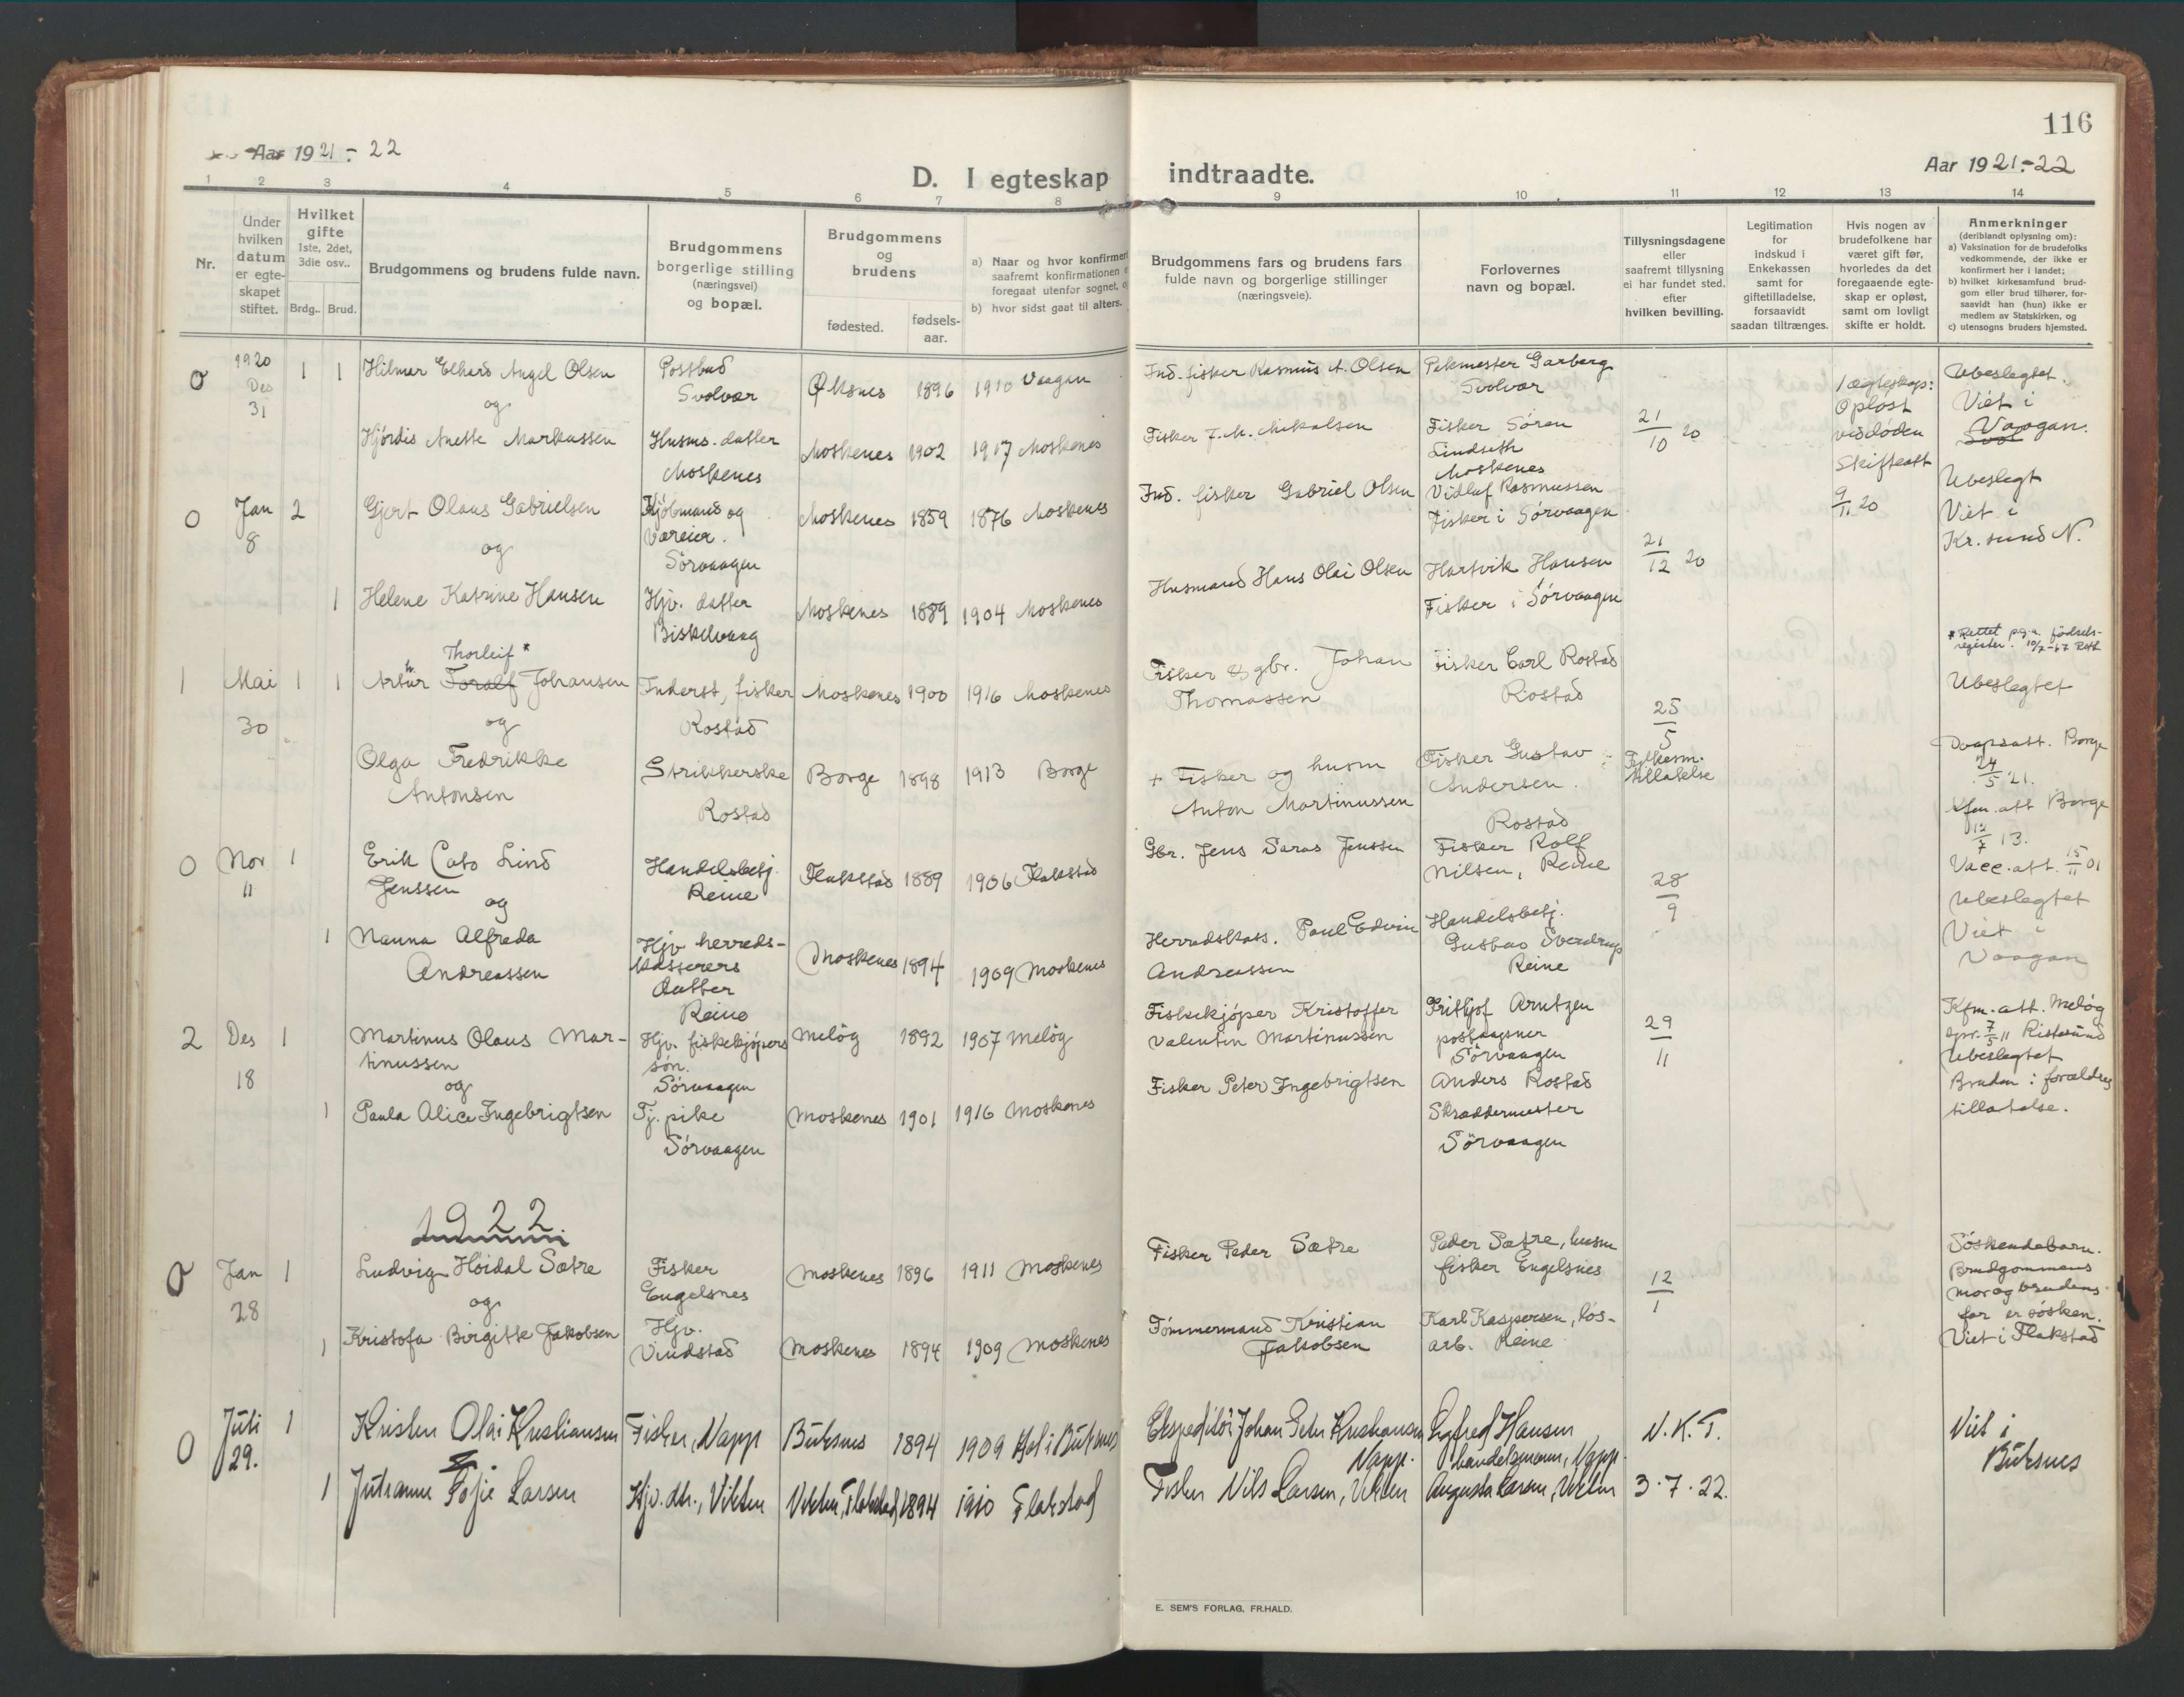 116
Aar 1921-22
D. I egteskap indtraadte.
Aar 1921-22
1 2 3 4 5 6 7 8 9 10 11 12 13 14
Nr.
Under hvilken datum er egte-skapet stiftet.
Hvilket gifte 1ste, 2det, 3die osv..
Brdg.. Brud.
Brudgommens og brudens fulde navn.
Brudgommens borgerlige stilling (næringsvei) og bopæl.
Brudgommens og brudens
fødested. fødsels-aar.
a) Naar og hvor konfirmert
saafremt konfirmationen
foregaat utenfor sognet,
b) hvor sidst gaat til alters.
Brudgommens fars og brudens fars
fulde navn og borgerlige stillinger
(næringsveie).
Forlovernes
navn og bopæl.
Tillysningsdagene
eller
saafremt tillysning
ei har fundet sted,
efter
hvilken bevilling.
Legitimation
for
indskud i
Enkekassen
samt for
giftetilladelse,
forsaavidt
saadan tiltrænges.
Hvis nogen av
brudefolkene har
været gift før,
hvorledes da det
foregaaende egte-
skap er opløst,
samt om lovligt
skifte er holdt.
Anmerkninger
(deriblandt oplysning om):
a) Vaksination for de brudefolks
vedkommende, der ikke er
konfirmert her i landet;
b) hvilket kirkesamfund brud-
gom eller brud tilhører, for-
saavidt han (hun) ikke er
medlem av Statskirken, og
c) utensogns bruders hjemsted.
0 1920 Des 31 1 1 Hilmar Elhard Angel Olsen
og
Postbud Svolvær Øksnes 1896 1910 Vaagan
Ind. fisker Rasmus A. Olsen Pakmester Garberg Svolvær
Ubeslegtet. Viet i Vaagan.
Hjørdis Anette Markussen Husms. datter Moskenes Moskenes 1902 1917 Moskenes
Fisker J. M. Mikalsen Fisker Søren Lindseth Moskenes 21/10 20
0 Jan 8 2 Gjert Olaus Gabrielsen
og
Kjøbmand og Væreier. Sørvaagen Moskenes 1859 1876 Moskenes
Ind. fisker Gabriel Olsen Vidluf Rasmussen Fisker i Sørvaagen 21/12 20
1 ægteskap: Opløst ved døden Skifteatt 9/11 20
Ubeslegt Viet i Kr. sund N.
1 Helene Katrine Hansen Hjv. datter Biskelvaag Moskenes 1889 1904 Moskenes
Husmand Hans Olai Olsen Hartvik Hansen Fisker i Sørvaagen
Thorleif *
1 Mai 30 1 1 Artur Toralf Johansen
og
Inderst, fisker Rostad Moskenes 1900 1916 Moskenes
Fisker & gbr. Johan Thomassen Fisker Carl Rostad Rostad
25/5 Fylkesm. tillatelse
* Rettet p.g.a. fødsels-
register. 10/7-67
Ubeslegtet
Olga Fredrikke Antonsen Strikkerske Rostad Borge 1898 1913 Borge
+ Fisker og husm Anton Martinussen Fisker Gustav Andersen. Rostad
Daapsatt. Borge 24/5 '21.
Kfm. att Borge 12/7 13.
Vacc. att. 15/11 01
0 Nov 11 1 Erik Cato Lind Jenssen
og
Handelsbetj. Reine Flakstad 1889 1906 Flakstad
Gbr. Jens Saras Jenssen Fisker Rolf Nilsen, Reine 28/9
Ubeslegtet Viet i Vaagan
1 Nanna Alfreda Andreassen Hjv herreds-kasserers datter Reine Moskenes 1894 1909 Moskenes
Herredskass. Paul Edvin Andreassen Handelsbetj. Gustav Sverdrup Reine
2 Des 18 1 Martinus Olaus Mar-
tinussen
og
Hjv. fiskekjøpers søn. Sørvaagen Meløy 1892 1907 Meløy
Fiskekjøper Kristoffer Valentin Martinussen Fritjof Arntzen postaapner Sørvaagen 29/11
Kfm. att. Meløy
Ubeslegtet
Bruden: forældres
tillatelse.
1 Paula Alice Ingebrigtsen Tj. pike Sørvaagen Moskenes 1901 1916 Moskenes
Fisker Peter Ingebrigtsen Anders Rostad Skræddermester Sørvaagen
1922
0 Jan 28 1 Ludvig Høidal Sætre
og
Fisker Engelsnes Moskenes 1896 1911 Moskenes
Fisker Peder Sætre Peder Sætre, husm fisker Engelsnes 12/1
Søskendebarn.
Brudgommens
mor og brudens
far er søsken.
Viet i Flakstad
1 Kristofa Birgitte Jakobsen Hjv. Vindstad Moskenes 1894 1909 Moskenes
Tømmermand Kristian Jakobsen Karl Kaspersen, løs-arb. Reine
0 Juli 29. 1 Kristen Olai Kristiansen Fisker, Napp Buksnes 1894 1909 Hol i Buksnes
Ekspeditør Johan Peter Kristiansen Napp. Sigfred Hansen handelsmann, Napp. N. K. T.
Viet i Buksnes
1 Jutranne Larsen Hjv. dtr., Vikten Vikten, Flakstad 1894 1910 Flakstad
Fisker Nils Larsen, Vikten Augusta Larsen, Vikten 3.7.22.
E. SEM'S FORLAG, FR.HALD.